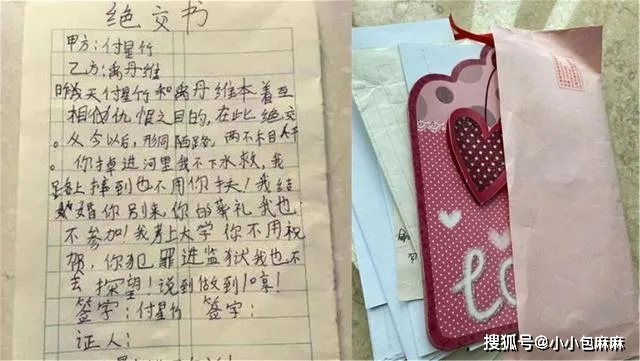 绝交书
甲方：付星竹
乙方：禹丹维
昨天付星竹和禹丹维本着互
相仇恨之目的，在此绝交
。从今以后，形同陌路，两不相干
。你掉进河里我不下水救，我
路上摔到也不用你扶！我结
婚你别来，你的葬礼我也
不参加！我考上大学你不用祝
贺，你犯罪进监狱我也不
去探望！说到做到！
签字：付星竹 签字：
证人：
搜狐号@小小包麻麻